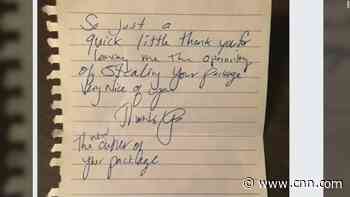 So just a
quick little thank you for
leaving me the oppurtunity
of stealing your package
very nice of you
Thanks
The new owner of
your package
www.cnn.com